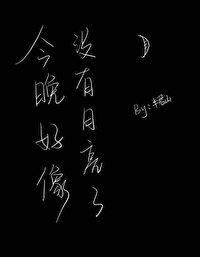 今晚好像
没有月亮了
By: